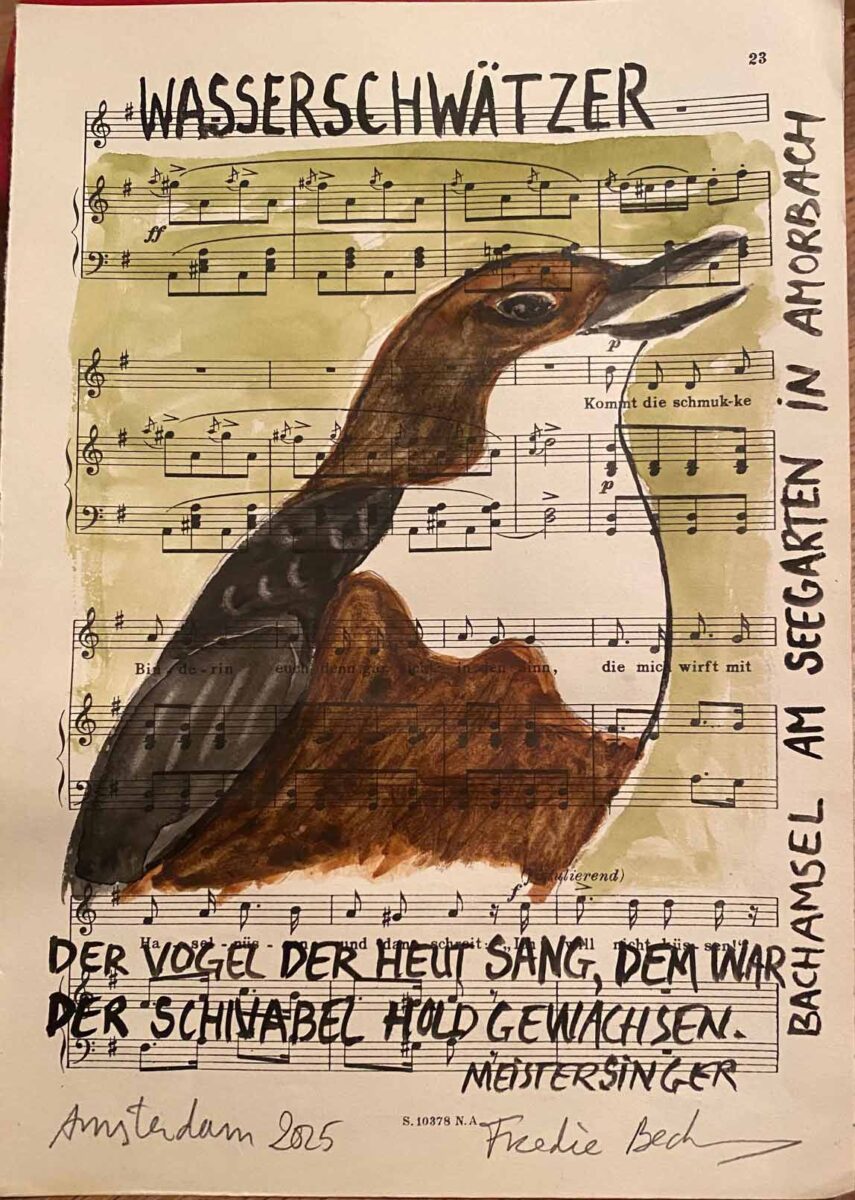 23
WASSERSCHWÄTZER
ff
p
Kommt die schmuk-ke
p
Bin - de - rin euch denn gar nicht in den Sinn, die mich wirft mit
Ha - sel - nüs - und dann schreit: will nicht küs - sen!"
DER VOGEL DER HEUT SANG, DEM WAR
DER SCHNABEL HOLD GEWACHSEN.
MEISTERSINGER
S. 10378 N. A.
Amsterdam 2025
Fredie Beck
BACHAMSEL AM SEEGARTEN IN AMORBACH